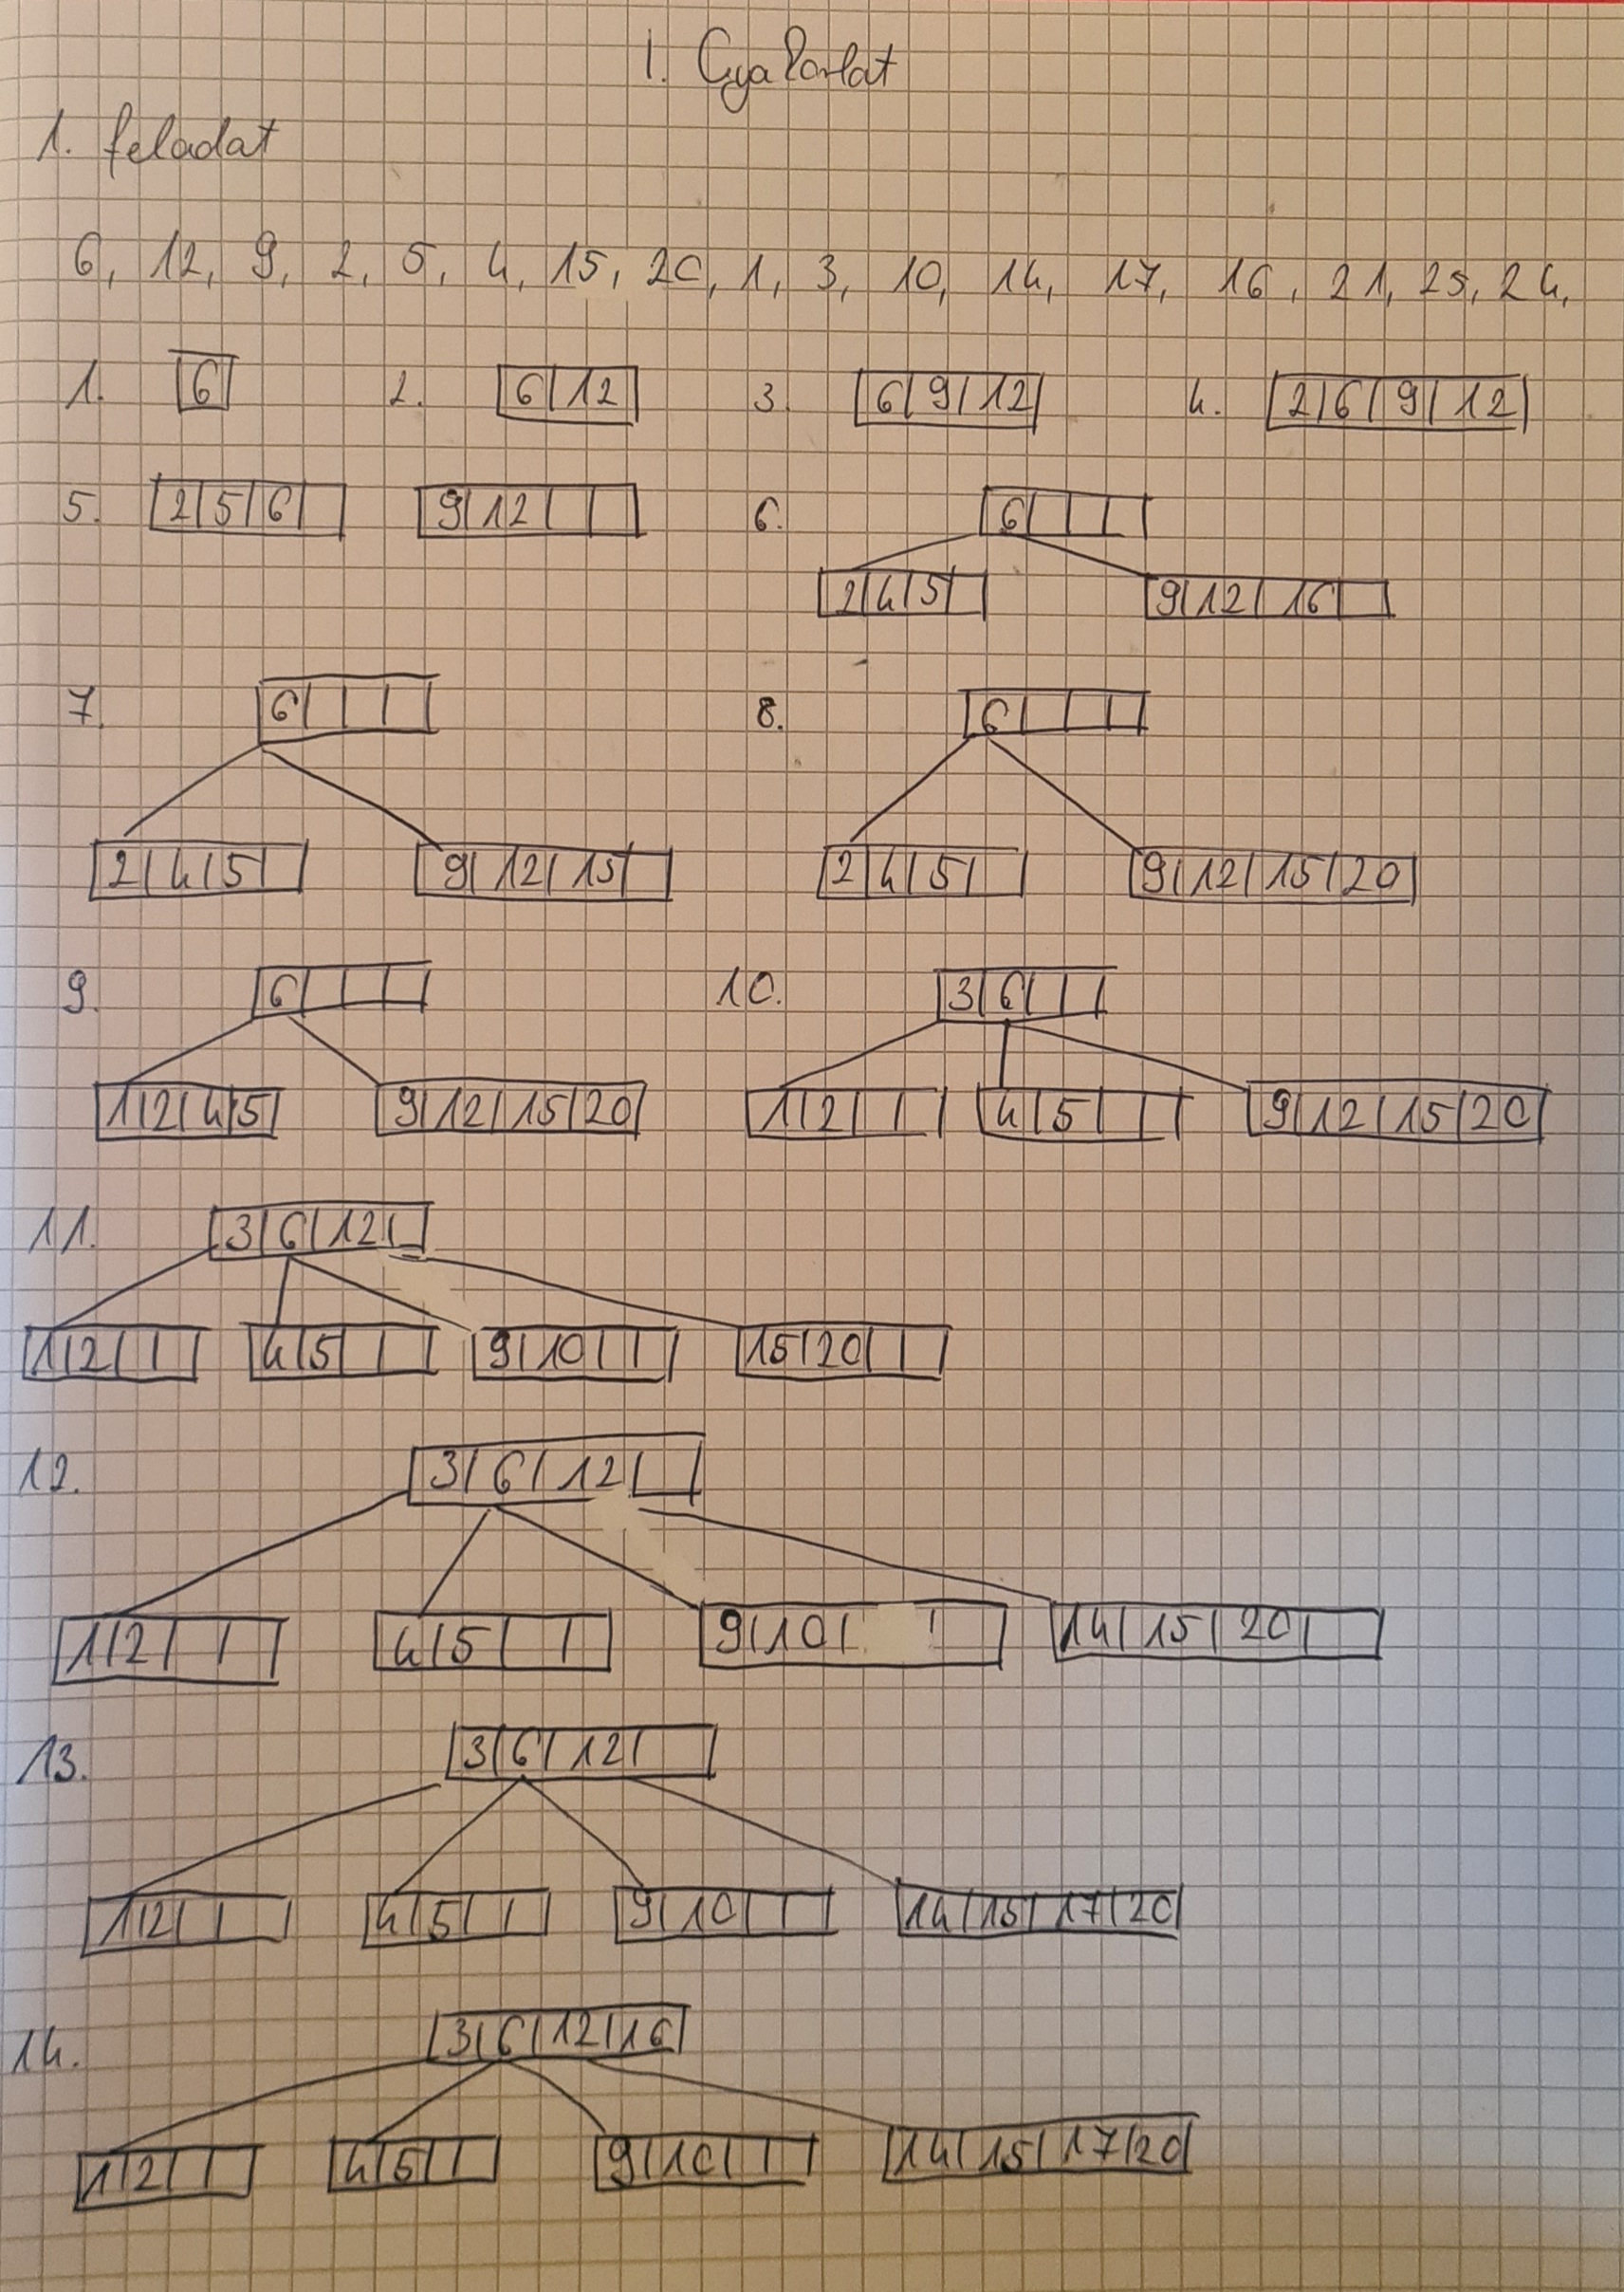 I. Gyakorlat
1. feladat
6, 12, 9, 2, 5, 4, 15, 20, 1, 3, 10, 14, 17, 16, 21, 25, 24,
1. 6 2. 6 12 3. 6 9 12 4. 2 6 9 12
5. 2 5 6 9 12 6. 6
2 4 5 9 12 16
7. 6 8. 6
2 4 5 9 12 15 2 4 5 9 12 15 20
9. 6 10. 3 6
1 2 4 5 9 12 15 20 1 2 4 5 9 12 15 20
11. 3 6 12
1 2 4 5 9 10 15 20
12. 3 6 12
1 2 4 5 9 10 14 15 20
13. 3 6 12
1 2 4 5 9 10 14 15 17 20
14. 3 6 12 16
1 2 4 5 9 10 14 15 17 20